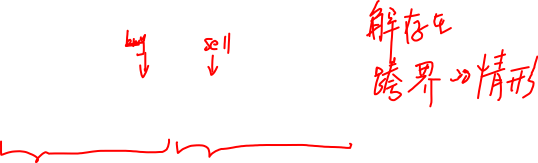 buy sell
解存在
跨界的情形